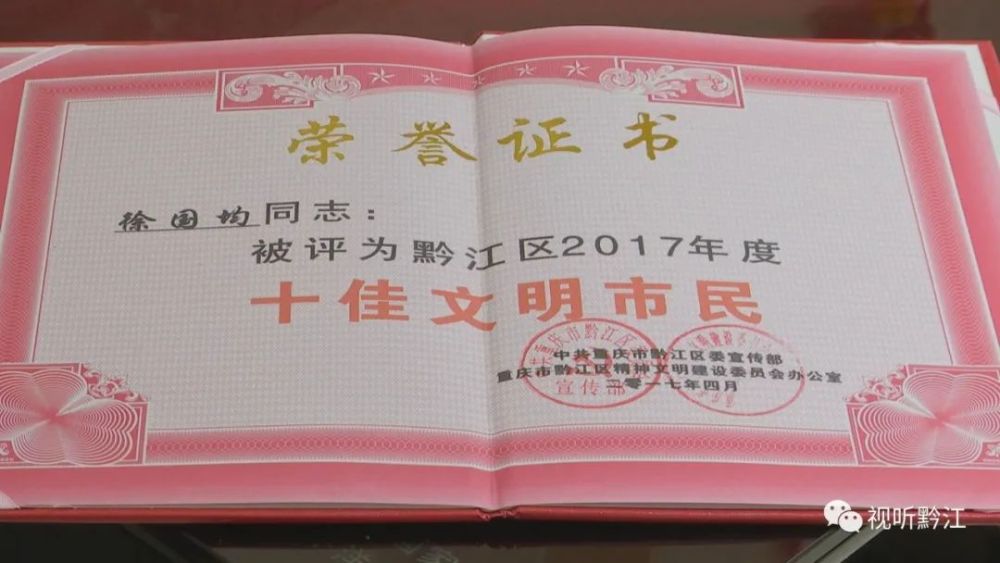 荣誉证书
徐国均同志：
被评为黔江区2017年度
十佳文明市民
中共重庆市黔江区委宣传部
重庆市黔江区精神文明建设委员会办公室
二零一七年四月
宣传部
视听黔江